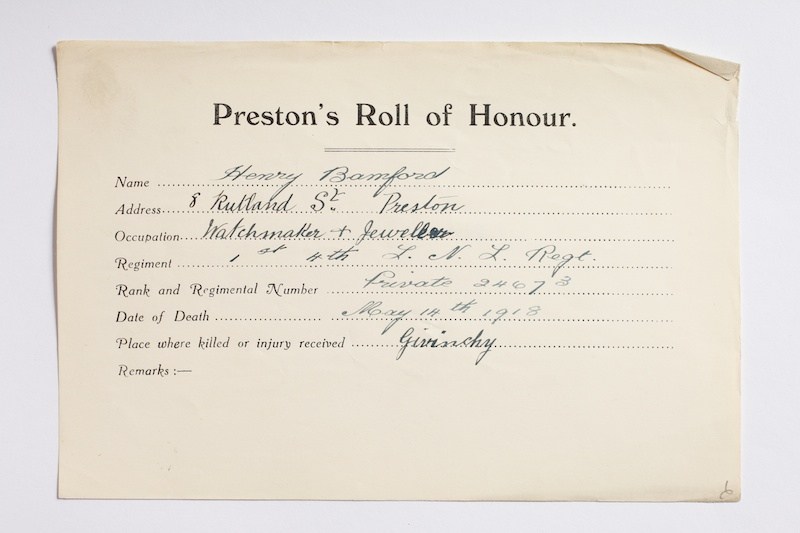 Preston's Roll of Honour.
Name Henry Bamford
Address 8 Rutland St. Preston
Occupation Watchmaker + Jeweller
Regiment 1st 4th L. N. L. Regt.
Rank and Regimental Number Private 34673
Date of Death May 14th 1918
Place where killed or injury received Givinchy
Remarks :—